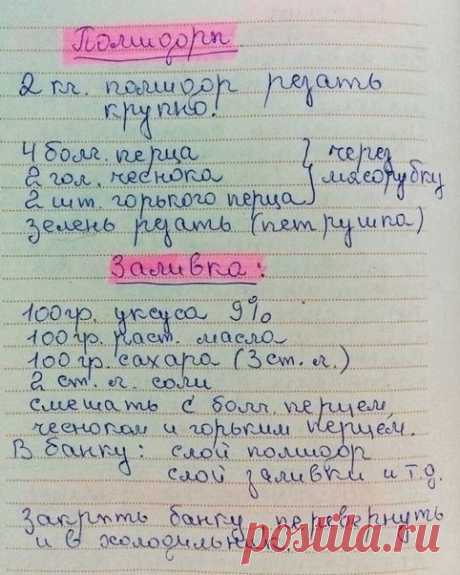 Помидоры
2 кг. помидор резать
крупно.
4 болг. перца } через
2 гол. чеснока } мясорубку
2 шт. горького перца
зелень резать (петрушка)
Заливка:
100 гр. уксуса 9%
100 гр. раст. масла
100 гр. сахара (3 ст. л.)
2 ст. л. соли
смешать с болг. перцем,
чесноком и горьким перцем.
В банку: слой помидор
слой заливки и т.д.
Закрыть банку, перевернуть
и в холодильник.
postila.ru